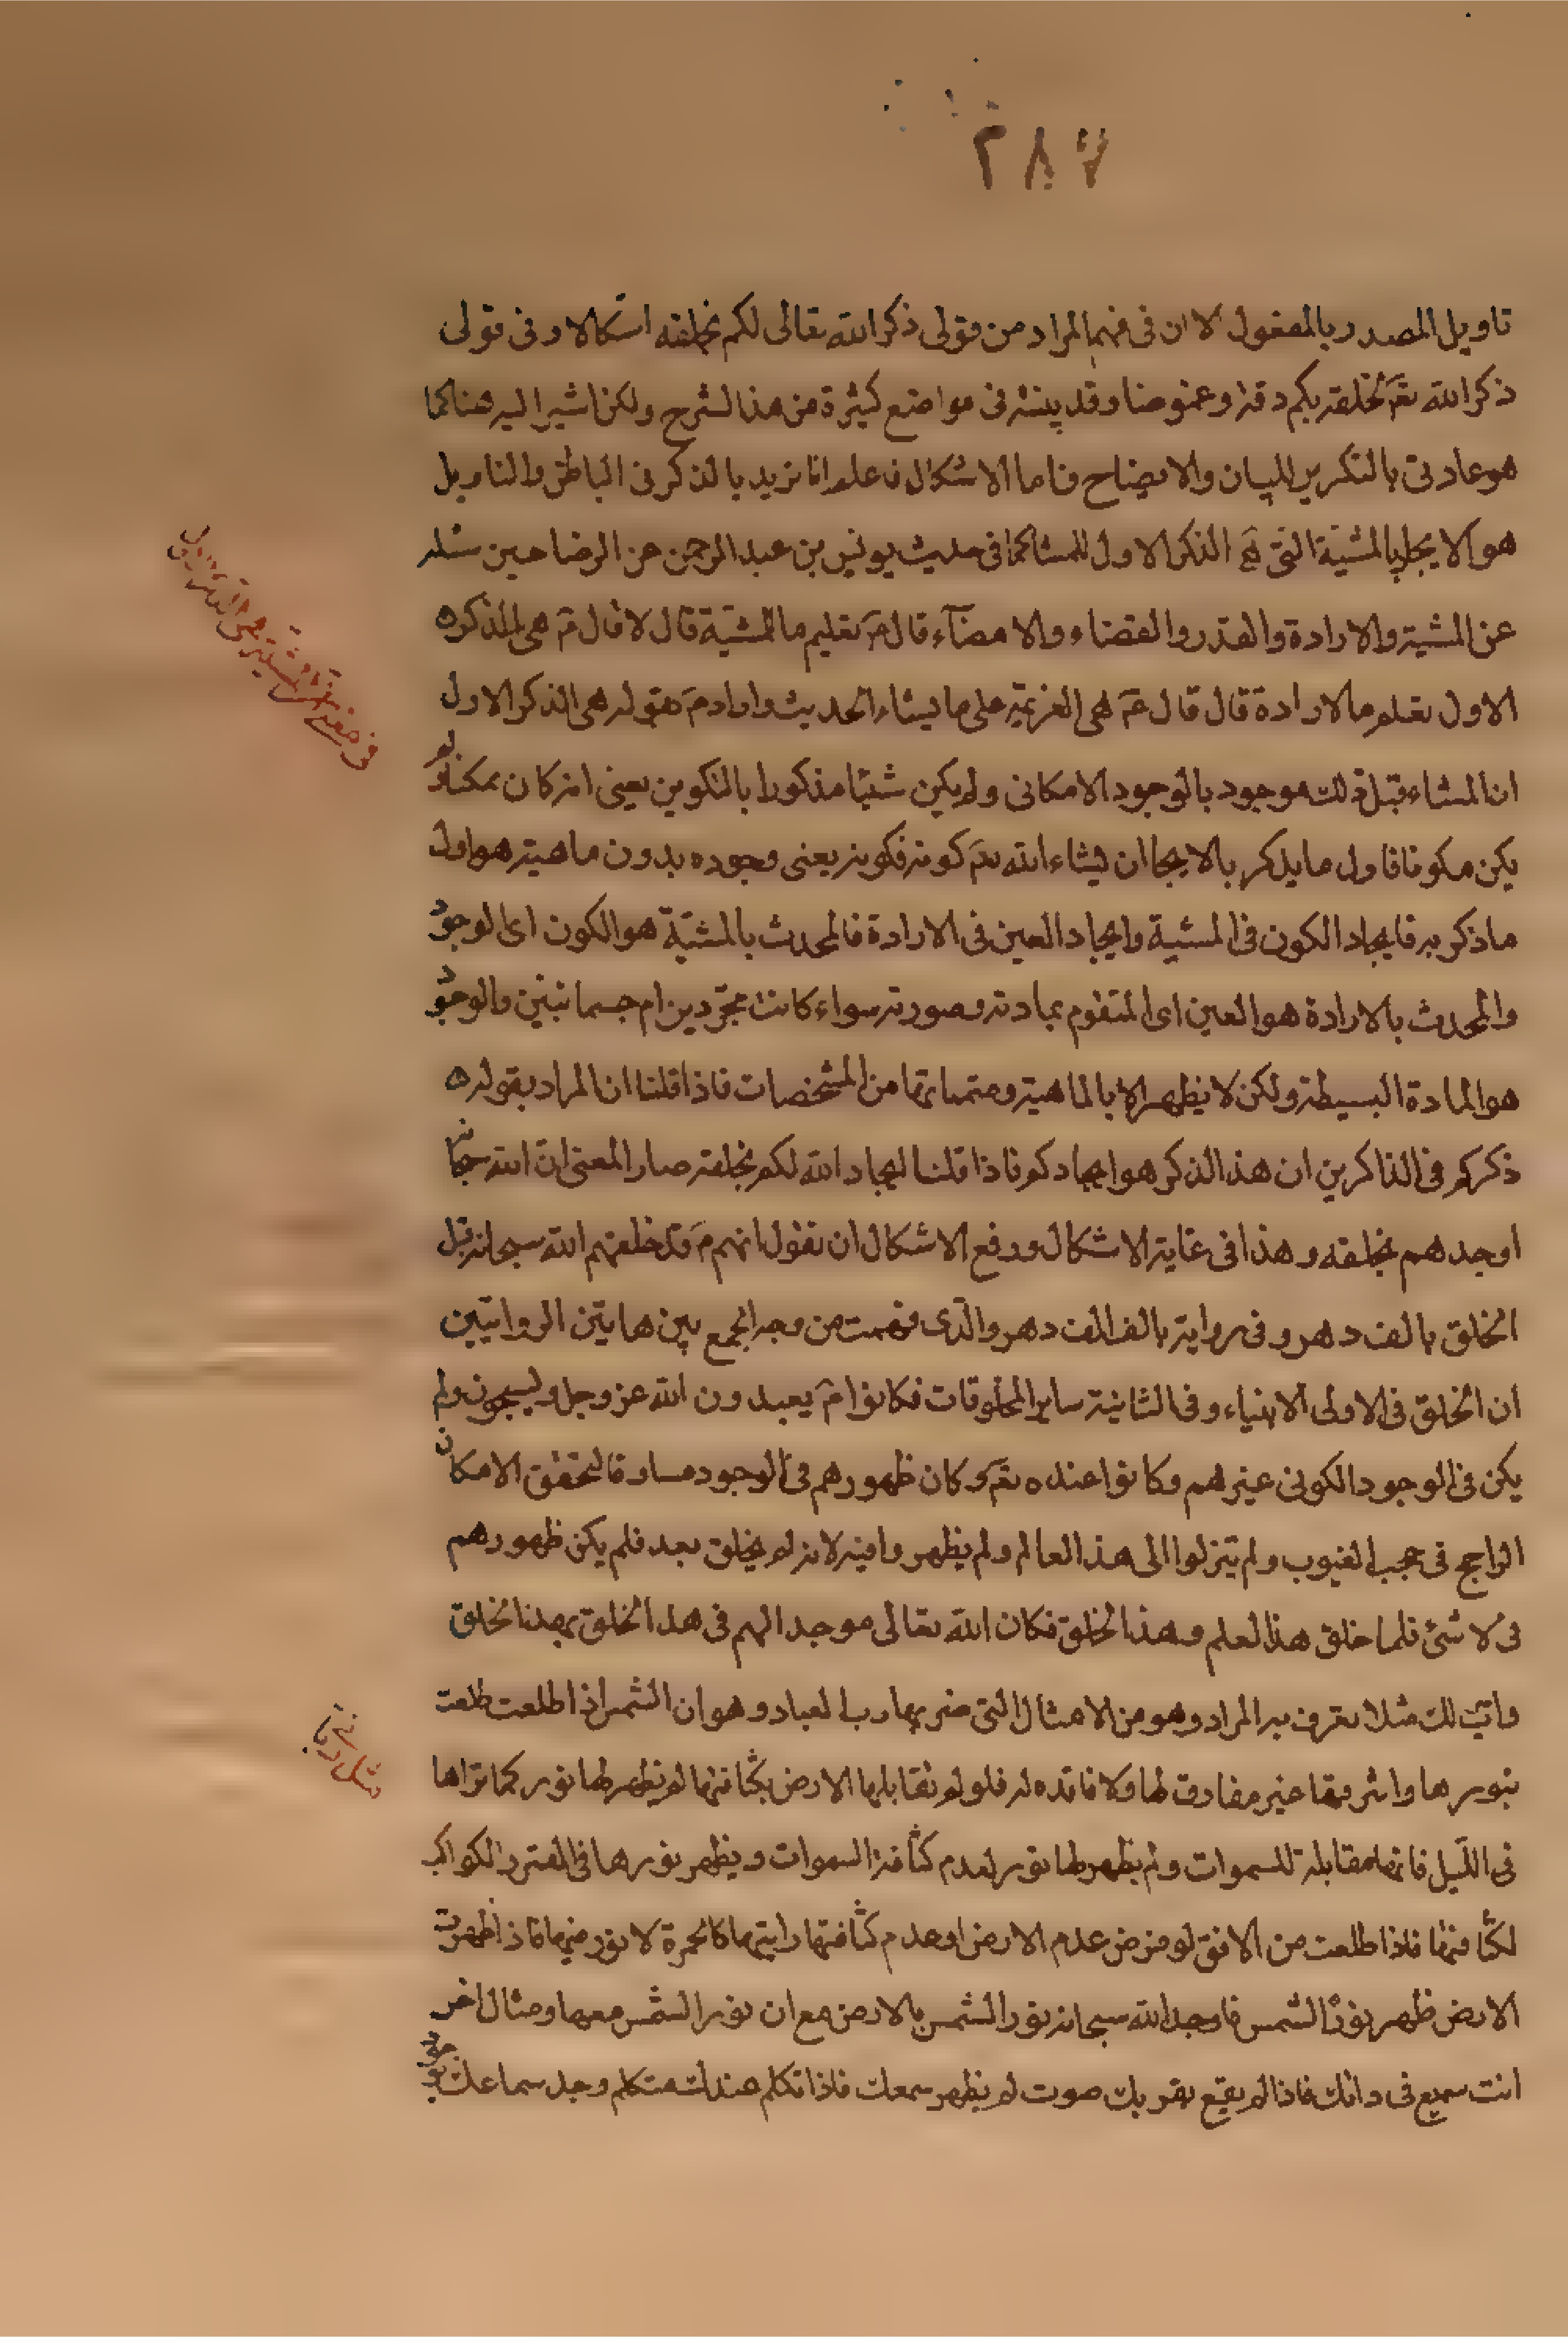 ٢٨٧
تاويل المصدر بالمفعول لا ان فى فهم المراد من قولى ذكر الله تعالى لكم بخلقه اشكالا وفى قولى
ذكر الله تعَ بخلقه بكم دقة وغموضا وقد بينته فى مواضع كثيرة من هذا لشرح ولكن اشير اليه هنا كما
هو عادتى بالتكرير للبيان والايضاح فاما الاشكال فاعلم انا نريد بالذكر فى الباطن والتاويل
هو الايجاد بالمشية التى هى الذكر الاول للمشا كما فى حديث يونس بن عبد الرحمن عن الرضا حين سئله
عن المشية والارادة والقدر والقضاء والامضآء قال عَ تعلم ما المشيّة قال لا قال عَ هى الذكره
الاول تعلم ما الارادة قال قال عَ هى العزيمة على ما يشاء الحديث واراد عَ بقوله هى الذكر الاول
ان المشاء قبل ذلك موجود بالوجود الامكانى ولم يكن شيئا مذكورا بالتكوين يعنى انه كان ممكنا ولم
يكن مكونا فاول ما يذكر بالايجا ان يشاء الله تعَ كونه فكونه يعنى وجوده بدون ماهيته هو اول
ما ذكر به فايجاد الكون فى المشية وايجاد العين فى الارادة فالمحدث بالمشيّة هو الكون اى الوجود
والمحدث بالارادة هو العين اى المتقوم بمادته وصورته سواء كانت مجرّدين ام جسمانيتين والوجود
هو المادة البسيطة ولكن لا يظهر الا بالماهية ومتمماتها من المشخصات فاذا قلنا ان المراد بقوله ه
ذكركم فى الذاكرين ان هذا الذكر هو ايجاد كونا ذا قلنا ايجاد الله لكم بخلقه صار المعنى ان الله سبحانه
اوجدهم بخلقه وهذا فى غاية الاشكال ورفع الاشكال ان نقول انهم عَ قد خلقهم الله سبحانه قبل
الخلق بالف دهر وفى رواية بالف الف دهر والذى فهمت من وجه الجمع بين هاتين الروايتين
ان الخلق فى الاولى الانبياء وفى الثانية ساير المخلوقات فكانوا عَ يعبدون الله عز وجل ويسبحون ولم
يكن فى الوجود الكونى غيرهم وكانوا عنده تعَ وكان ظهورهم فى الوجود مساوقا لتحقق الامكان
الراجح فى حجب الغيوب ولم يتنزلوا الى هذا العالم ولم يظهروا فيه لانه لم يخلق بعد فلم يكن ظهورهم
فى لا شئ فلما خلق هذا لعلم وهذا الخلق فكان الله تعالى موجدا لهم فى هذا الخلق بهذا الخلق
واتى لك مثلا تعرف به المراد وهو من الامثال التى ضربها رب العباد وهو ان الشمس اذا طلعت طلعت
بنورها واشرقها غير مفارق لها ولا فاقده له فلو لم تقابلها الارض بكثافتها لم يظهر لها نور كما تراها
فى الليل فانها مقابلة للسموات ولم يظهر لها نور لعدم كثافة السموات ويظهر نورها فى القمر والكواكب
لكثافتها فاذا طلعت من الافق لو فرض عدم الارض او عدم كثافتها رايتها كالجمرة لا نور فيها فاذا ظهرت
الارض ظهر نور الشمس فاوجد الله سبحانه نور الشمس بالارض مع ان نور الشمس معها ومثال اخر
انت سميع فى ذاتك فاذا لم يقع بقربك صوت لم يظهر سمعك فاذا تكلم عندك متكلم وجد سماعك بوجود